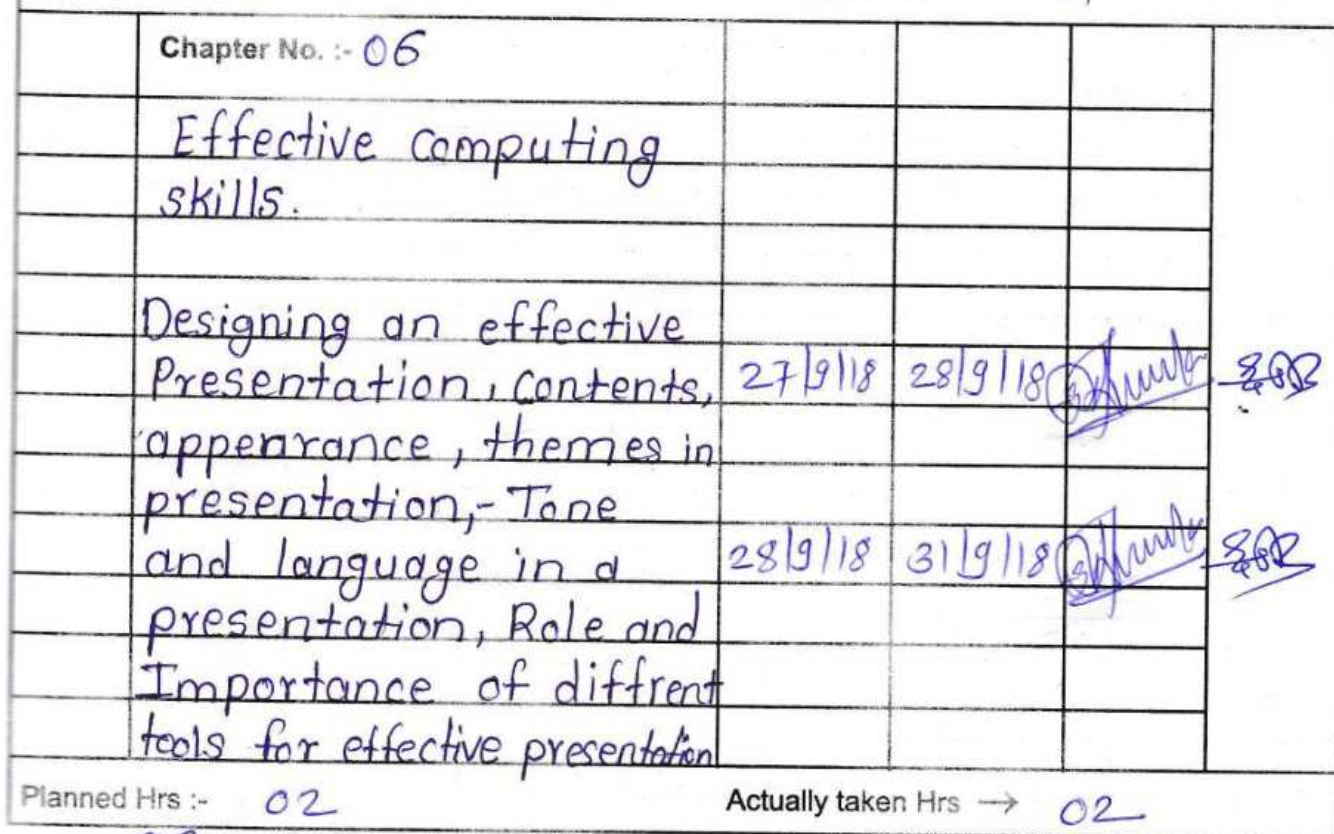 Chapter No. :- 06
Effective computing
skills.
Designing an effective
Presentation, contents, 27/9/18 28/9/18
appenrance, themes in
presentation,- Tone
and language in a 28/9/18 31/9/18
presentation, Role and
Importance of diffrent
tools for effective presentation
Planned Hrs :- 02 Actually taken Hrs → 02